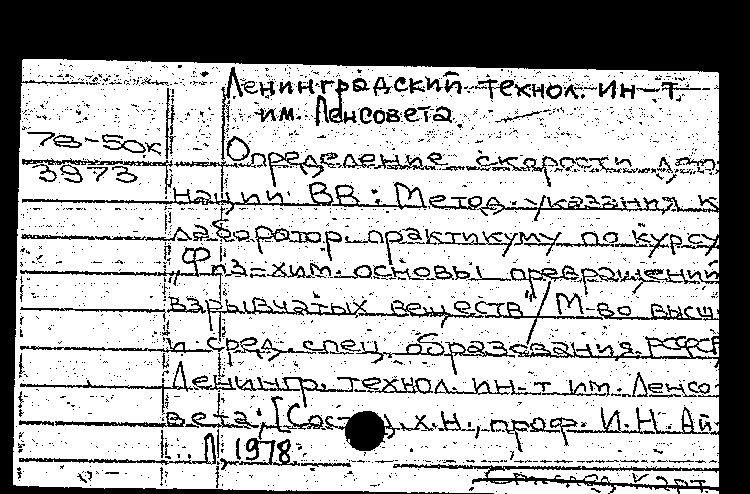 Ленинградский технол. ин-т
им. Ленсовета
78-50к
3973
Определение скорости дето
нации ВВ: Метод. указания к
лаборатор. практикуму по курсу
„Физ-хим. основы превращений
взрывчатых веществ"/ М-во высш.
и сред. спец. образования РСФСР
Ленингр. технол. ин-т им. Ленсо
вета; [Сост. д.х.н., проф. И.Н. Ай-
... Л, 1978
карт.